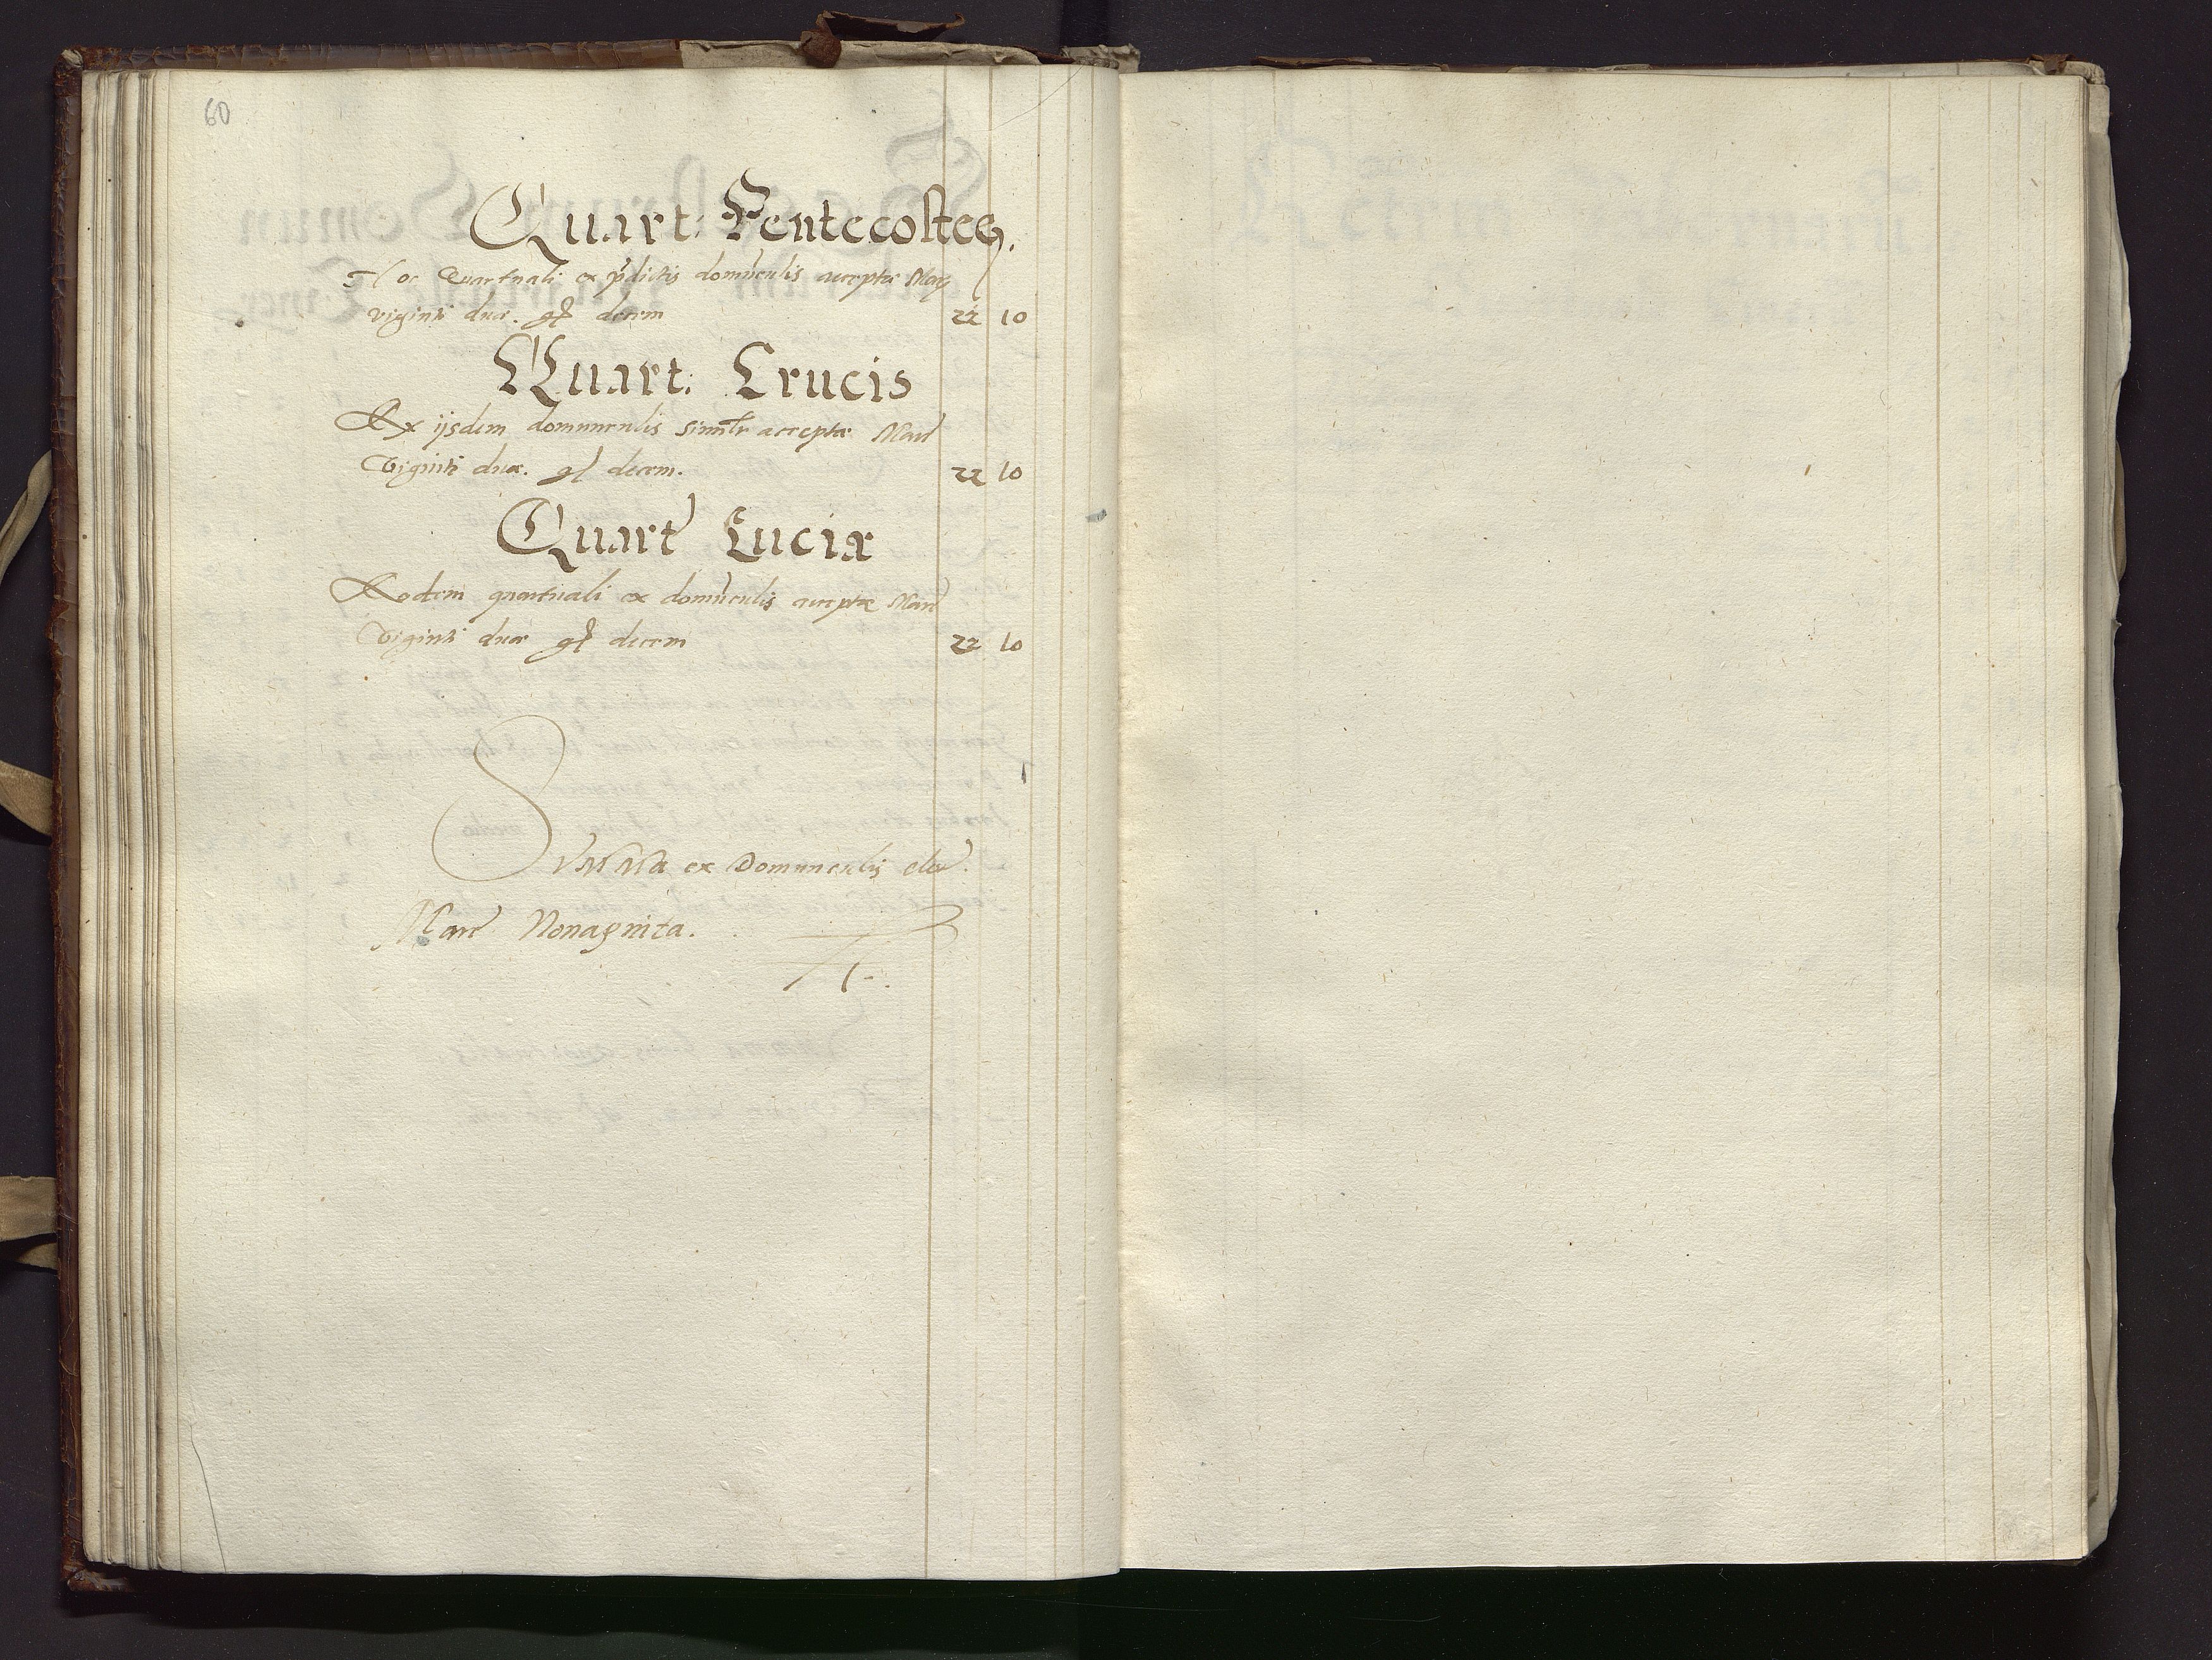 60
Quart: Pentecostes.
Hoc Quartuali ex pdictis domūculis acceptæ Marc
viginti duæ. gl decem 22 10
Quart: Crucis
Ex ijsdem domunculis simltr acceptæ Marc
Viginti duæ. gl decem. 22 10
Quart Luciæ
Eodem quartuali ex domūculis acceptæ Marc
Viginti duæ gl decem 22 10
Summa ex Domunculis
Marc Nonaginta.